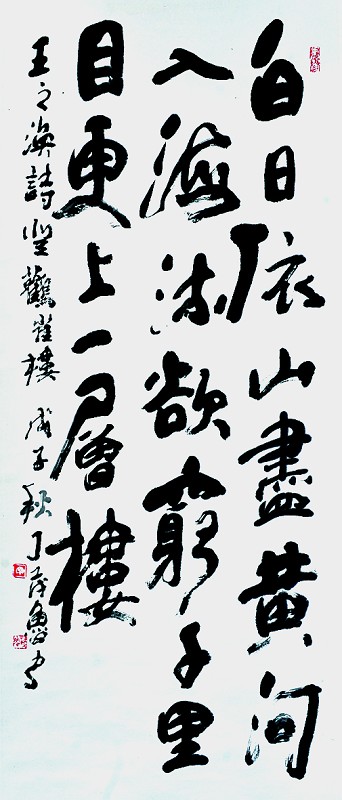 白日依山盡黄河
入海流欲窮千里
目更上一層樓
王之渙詩登鸛雀樓 戊子秋 丁茂魯书